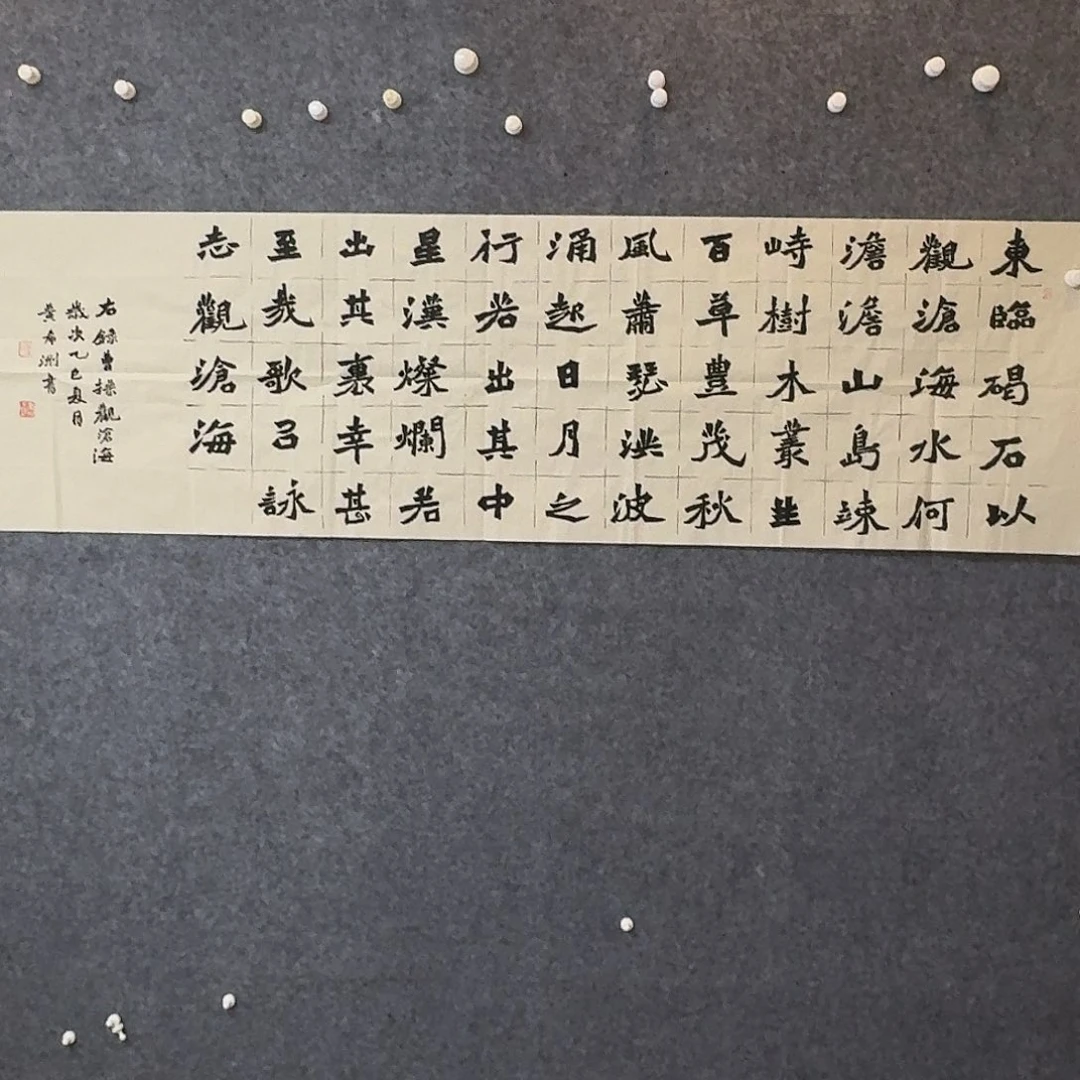 東臨碣石以
觀滄海水何
澹澹山島竦
峙樹木叢生
百草豐茂秋
風蕭瑟洪波
涌起日月之
行若出其中
星漢燦爛若
出其裏幸甚
至哉歌㠯詠
志觀滄海
右錄曹操觀滄海
歲次乙巳夏月
黄希洲書